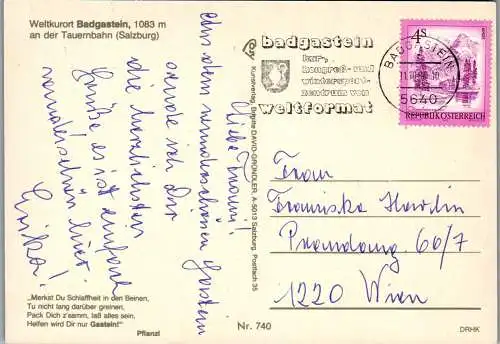 Weltkurort Badgastein, 1083 m
an der Tauernbahn (Salzburg)
badgastein
kur-,
kongreß- und
wintersport-
zentrum von
weltformat
BADGASTEIN
5640
4s
REPUBLIK ÖSTERREICH
Kunstverlag Brigitte DAVID-GRÜNDLER, A-5013 Salzburg, Postfach 35
Liebe Franzi!
Aus dem wunderschönen Gastein
sende ich Dir
die herzlichsten
Grüße, es ist einfach
wunderschön hier.
Erika!
Frau
Franziska
66/7
1220 Wien
„Merkst Du Schlaffheit in den Beinen,
Tu nicht lang darüber greinen,
Pack Dich z'samm, laß alles sein,
Helfen wird Dir nur Gastein!"
Pflanzl
Nr. 740
DRHK